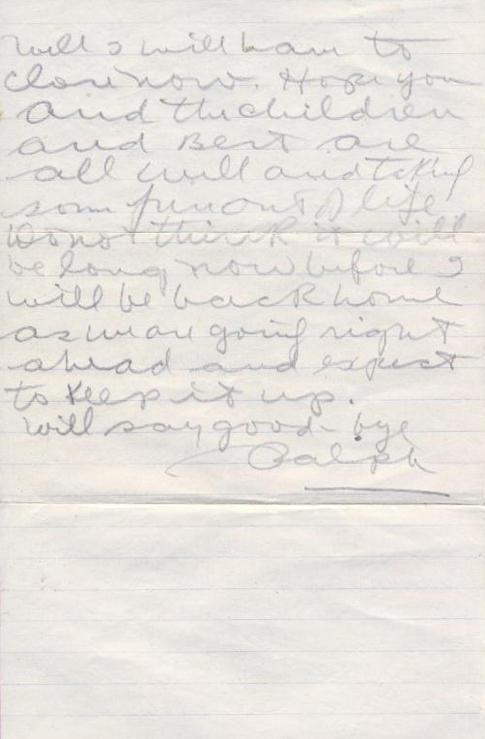 Well I will have to
close now. Hope you
and the children
and Bert are
all well and taking
some fun out of life
Do not think it will
be long now before I
will be back home
as we are going right
ahead and expect
to keep it up.
Will say good-bye
Ralph